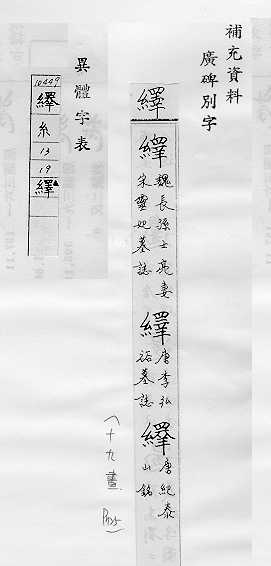 補充資料
廣碑別字
繹
繹
魏長孫士亮妻
宋靈妃墓誌
繹
唐李弘
裕墓誌
繹
唐紀泰
山銘
(十九畫 P725)
異體字表
10449
繹
糸
13
19
繹